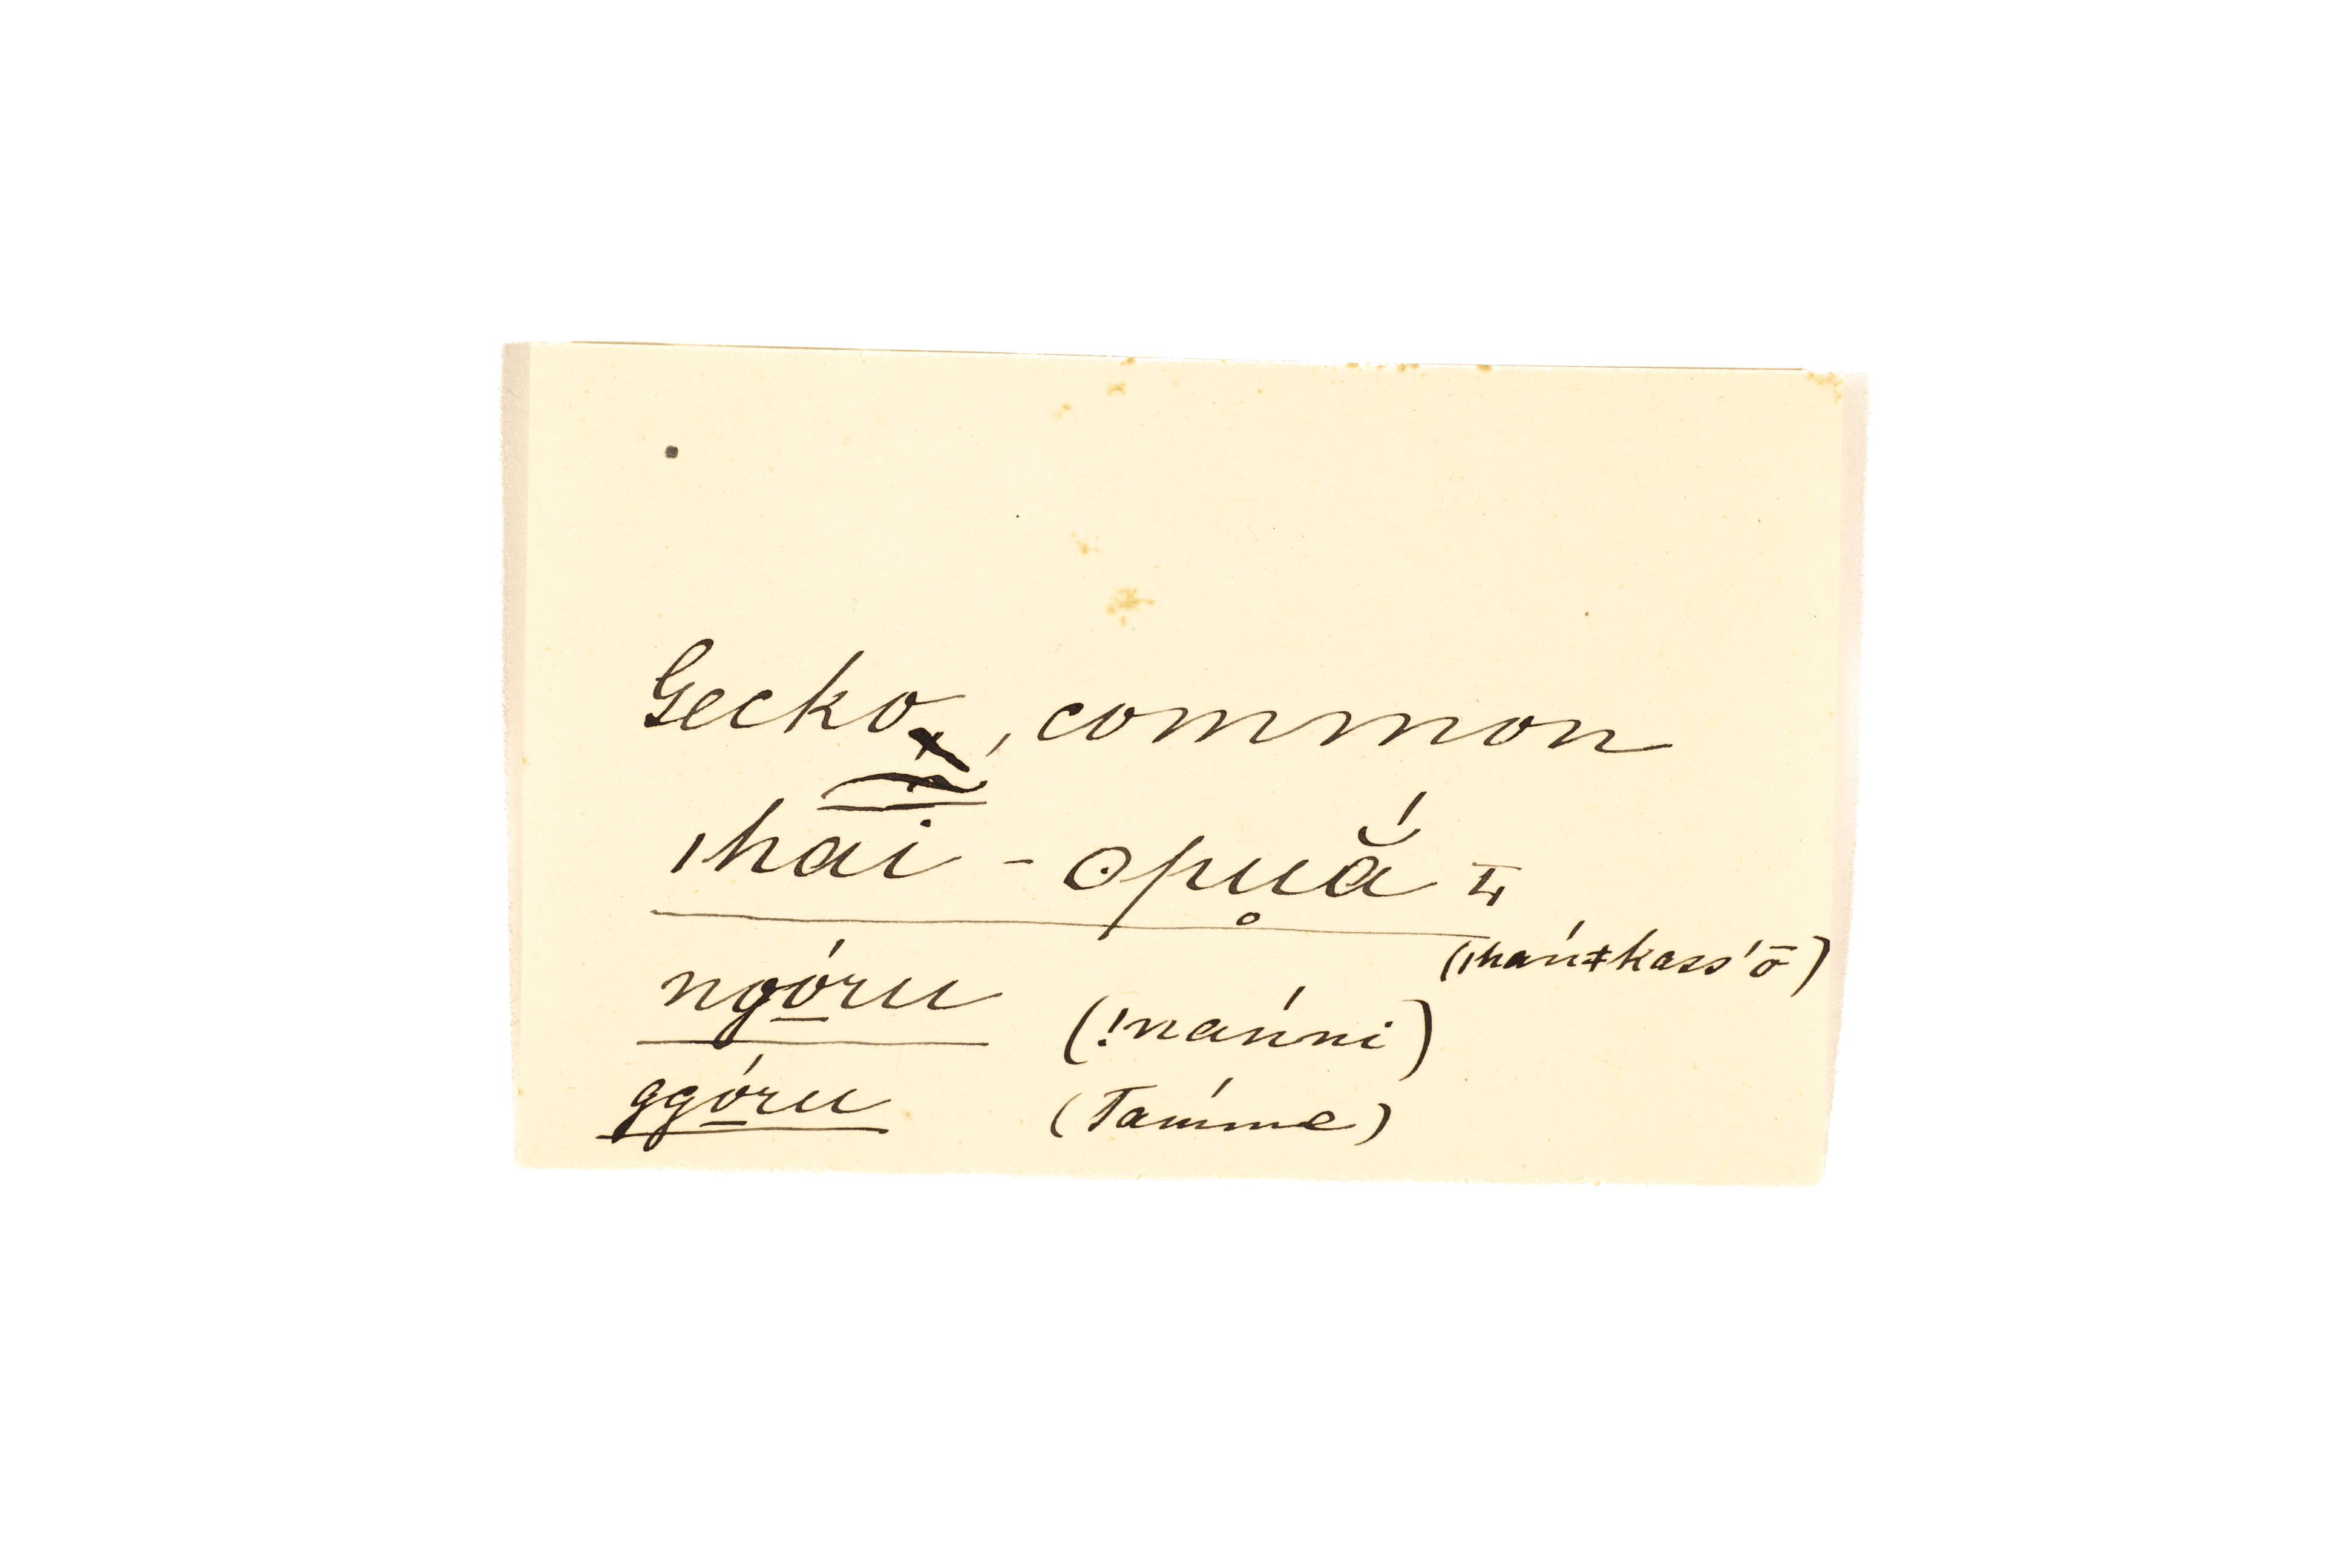 Gecko, common
ǀhai - ʘpu̥ắ I
(ǀhań≠kass'ō)
ngó̱ru (!nańni)
ggó̱ru (Tamme)